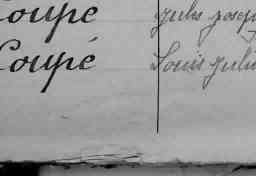 Coupé Jules Josep
Coupé Louis Juli